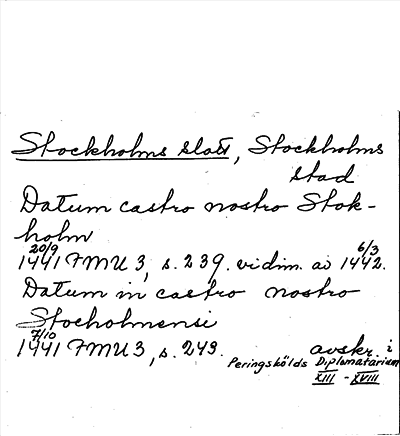 Stockholms slott, Stockholms
stad
Datum castro nostro Stok-
holm
20/9 6/3
1441 FMU 3, s. 239. vidim. av 1442.
Datum in castro nostro
Stocholmensi
7/10
1441 FMU 3, s. 243. avskr. i
Peringskölds Diplomatarium
XIII - XVIII